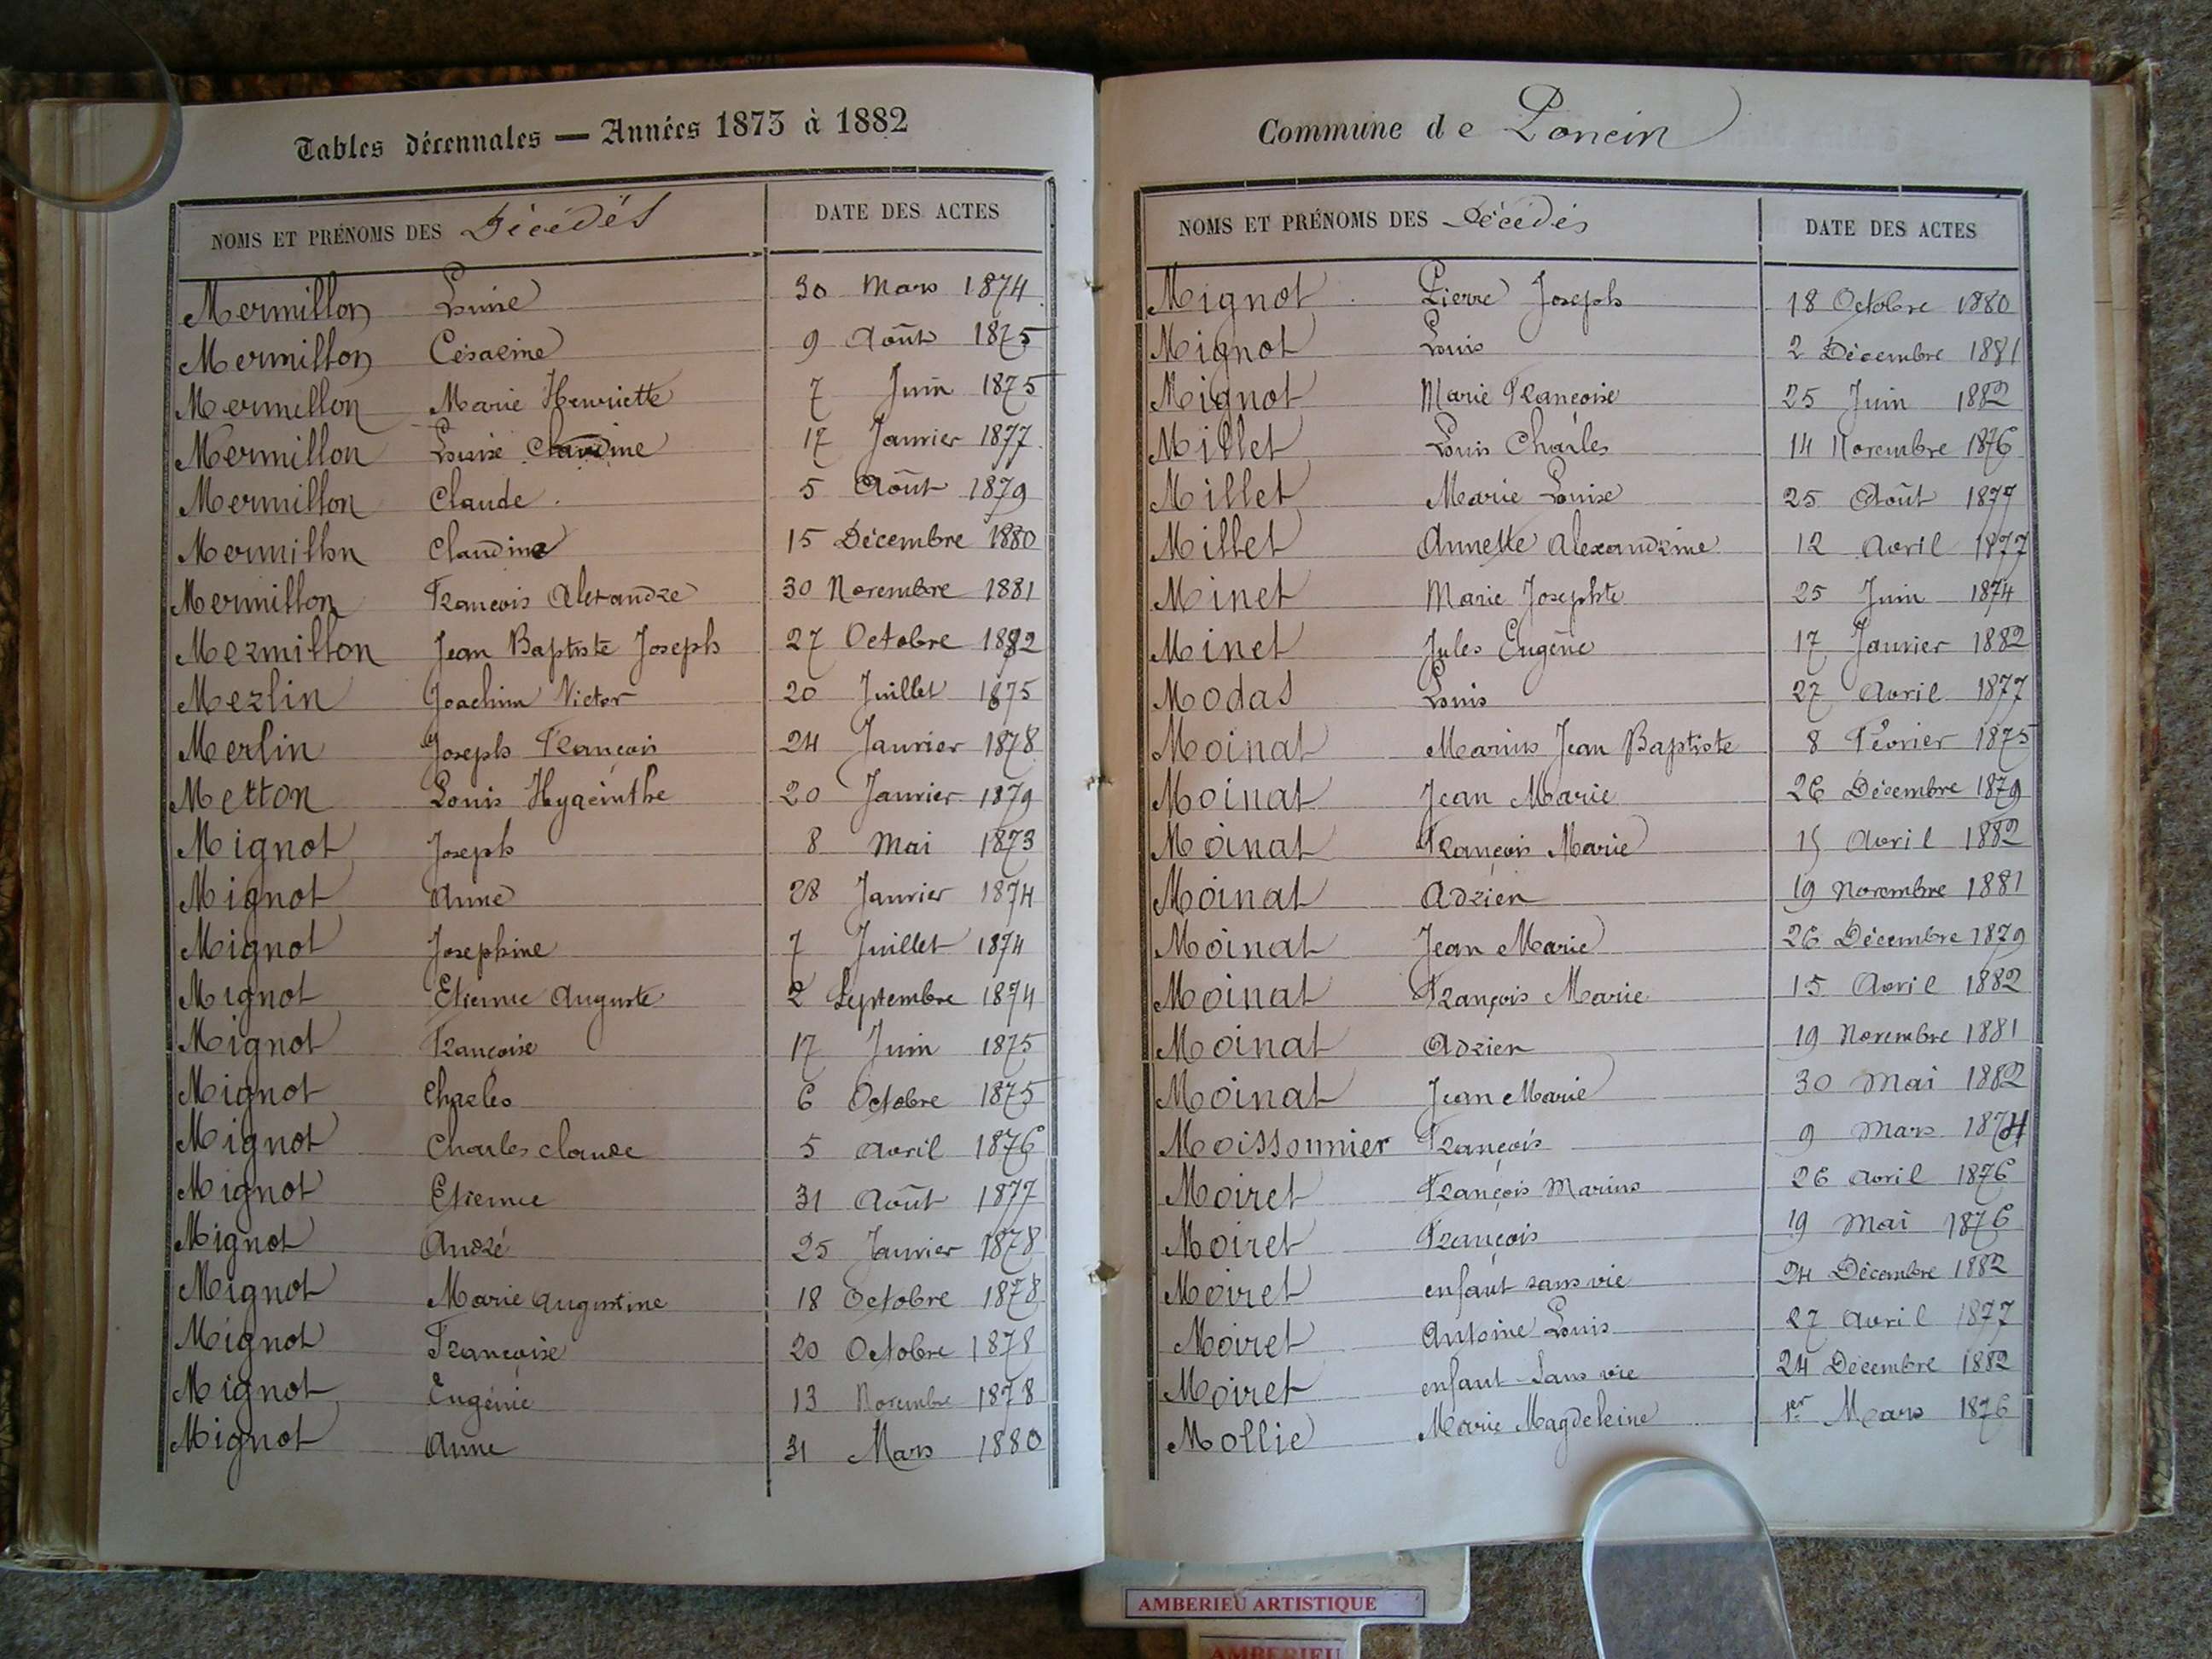 Tables décennales — Années 1873 à 1882
NOMS ET PRÉNOMS DES Décédés DATE DES ACTES
Mermillon Louise 30 Mars 1874
Mermillon Césarine 9 Août 1875
Mermillon Marie Henriette 7 Juin 1875
Mermillon Louise Claudine 17 Janvier 1877
Mermillon Claude 5 Août 1879
Mermillon Claudine 15 Décembre 1880
Mermillon François Alexandre 30 Novembre 1881
Mermillon Jean Baptiste Joseph 27 Octobre 1882
Merlin Joachim Victor 20 Juillet 1875
Merlin Joseph François 24 Janvier 1878
Metton Louis Hyacinthe 20 Janvier 1879
Mignot Joseph 8 Mai 1873
Mignot Anne 28 Janvier 1874
Mignot Josephine 7 Juillet 1874
Mignot Etienne Auguste 2 Septembre 1874
Mignot Françoise 17 Juin 1875
Mignot Charles 6 Octobre 1875
Mignot Charles Claude 5 Avril 1876
Mignot Etienne 31 Août 1877
Mignot André 25 Janvier 1878
Mignot Marie Augustine 18 Octobre 1878
Mignot Françoise 20 Octobre 1878
Mignot Eugénie 13 Novembre 1878
Mignot Anne 31 Mars 1880
Commune de Poncin
NOMS ET PRÉNOMS DES Décédés DATE DES ACTES
Mignot Pierre Joseph 18 Octobre 1880
Mignot Louis 2 Décembre 1881
Mignot Marie Françoise 25 Juin 1882
Millet Louis Charles 14 Novembre 1876
Millet Marie Louise 25 Août 1877
Millet Annette Alexandrine 12 Avril 1877
Minet Marie Josephte 25 Juin 1874
Minet Jules Eugène 17 Janvier 1882
Modas Louis 27 Avril 1877
Moinat Marius Jean Baptiste 8 Février 1875
Moinat Jean Marie 26 Décembre 1879
Moinat François Marie 15 Avril 1882
Moinat Adrien 19 Novembre 1881
Moinat Jean Marie 26 Décembre 1879
Moinat François Marie 15 Avril 1882
Moinat Adrien 19 Novembre 1881
Moinat Jean Marie 30 Mai 1882
Moissonnier François 9 Mars 1874
Moiret François Marius 26 Avril 1876
Moiret François 19 Mai 1876
Moiret enfant sans vie 24 Décembre 1882
Moiret Antoine Louis 27 Avril 1877
Moiret enfant sans vie 24 Décembre 1882
Mollie Marie Magdeleine 1er Mars 1876
AMBERIEU ARTISTIQUE
AMBERIEU